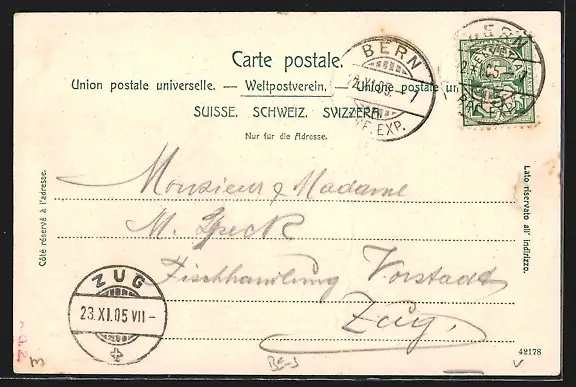 Carte postale.
Union postale universelle. — Weltpostverein. — Unione postale un
SUISSE. SCHWEIZ. SVIZZERA.
Nur für die Adresse.
BERN
XI.05.
EXP.
BERN
HELVETIA
Côté réservé à l'adresse.
Lato riservato all' indirizzo.
Monsieur & Madame
M. Speck
Fischhandlung Vorstadt
Zug.
ZUG
23.XI.05 VII-
42178